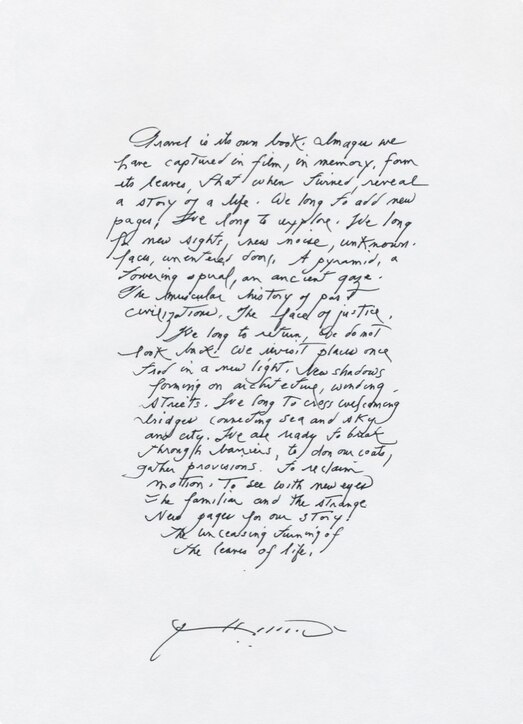 Travel is its own book. Images we
have captured in film, in memory, form
its leaves, that when turned, reveal
a story of a life. We long to add new
pages. We long to explore. We long
for new sights, new noise, unknown
faces, unentered doors. A pyramid, a
towering spiral, an ancient gaze.
The muscular history of past
civilizations. The face of justice.
We long to return, we do not
look back! We revisit places once
trod in a new light. New shadows
forming on architecture, winding
streets. We long to cross welcoming
bridges connecting sea and sky
and city. We are ready to break
through barriers, to don our coats,
gather provisions. To reclaim
motion. To see with new eyes
the familiar and the strange
New pages for our story!
The unceasing turning of
the leaves of life.